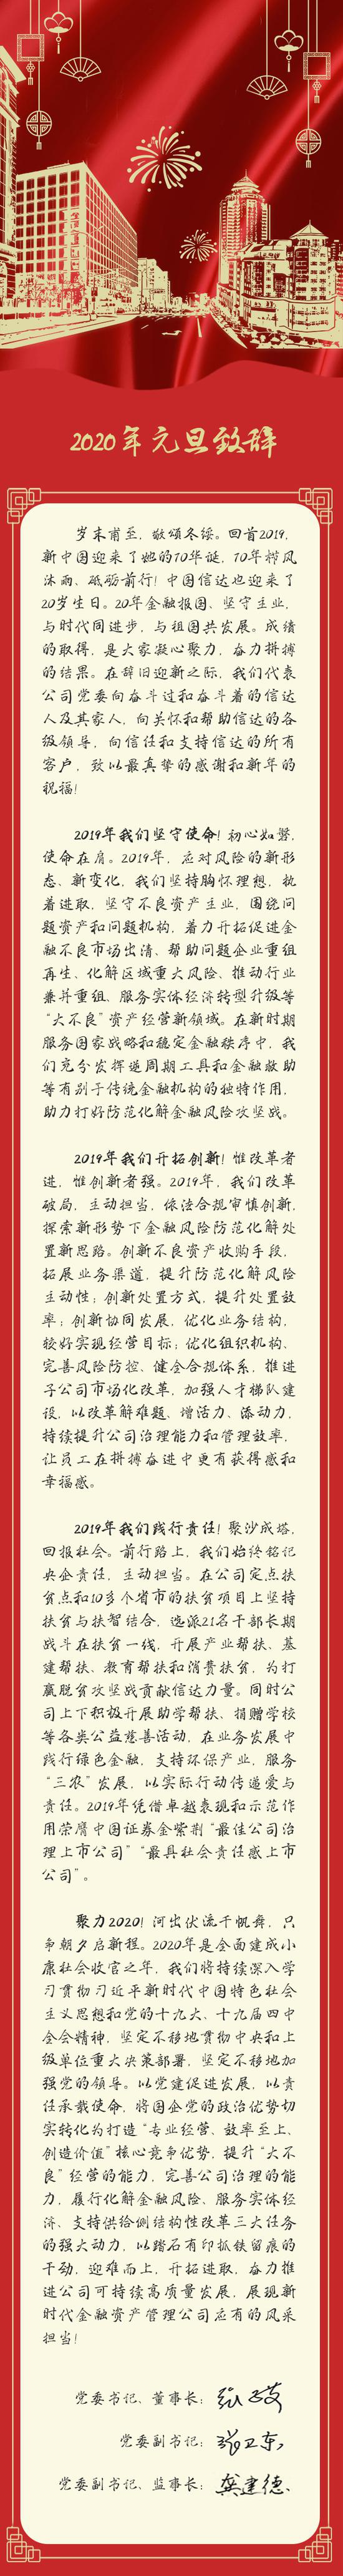 2020年元旦致辞
岁末甫至，敬颂冬绥。回首2019，
新中国迎来了她的70华诞，70年栉风
沐雨、砥砺前行！中国信达也迎来了
20岁生日。20年金融报国，坚守主业，
与时代同进步，与祖国共发展。成绩
的取得，是大家凝心聚力，奋力拼搏
的结果。在辞旧迎新之际，我们代表
公司党委向奋斗过和奋斗着的信达
人及其家人，向关怀和帮助信达的各
级领导，向信任和支持信达的所有
客户，致以最真挚的感谢和新年的
祝福！
2019年我们坚守使命！初心如磐，
使命在肩。2019年，应对风险的新形
态、新变化，我们坚持胸怀理想，执
着进取，坚守不良资产主业，围绕问
题资产和问题机构，着力开拓促进金
融不良市场出清、帮助问题企业重组
再生、化解区域重大风险、推动行业
兼并重组、服务实体经济转型升级等
“大不良”资产经营新领域。在新时期
服务国家战略和稳定金融秩序中，我
们充分发挥逆周期工具和金融救助
等有别于传统金融机构的独特作用，
助力打好防范化解金融风险攻坚战。
2019年我们开拓创新！惟改革者
进，惟创新者强。2019年，我们改革
破局，主动担当，依法合规审慎创新，
探索新形势下金融风险防范化解处
置新思路。创新不良资产收购手段，
拓展业务渠道，提升防范化解风险
主动性；创新处置方式，提升处置效
率；创新协同发展，优化业务结构，
较好实现经营目标；优化组织机构、
完善风险防控、健全合规体系，推进
子公司市场化改革，加强人才梯队建
设，以改革解难题、增活力、添动力，
持续提升公司治理能力和管理效率，
让员工在拼搏奋进中更有获得感和
幸福感。
2019年我们践行责任！聚沙成塔，
回报社会。前行路上，我们始终铭记
央企责任，主动担当。在公司定点扶
贫点和10多个省市的扶贫项目上坚持
扶贫与扶智结合，选派21名干部长期
战斗在扶贫一线，开展产业帮扶、基
建帮扶、教育帮扶和消费扶贫，为打
赢脱贫攻坚战贡献信达力量。同时公
司上下积极开展助学帮扶、捐赠学校
等各类公益慈善活动，在业务发展中
践行绿色金融，支持环保产业，服务
“三农”发展，以实际行动传递爱与
责任。2019年凭借卓越表现和示范作
用荣膺中国证券金紫荆“最佳公司治
理上市公司”“最具社会责任感上市
公司”。
聚力2020！河出伏流千帆舞，只
争朝夕启新程。2020年是全面建成小
康社会收官之年，我们将持续深入学
习贯彻习近平新时代中国特色社会
主义思想和党的十九大、十九届四中
全会精神，坚定不移地贯彻中央和上
级单位重大决策部署，坚定不移地加
强党的领导。以党建促进发展，以责
任承载使命，将国企党的政治优势切
实转化为打造“专业经营、效率至上、
创造价值”核心竞争优势，提升“大不
良”经营的能力，完善公司治理的能
力，履行化解金融风险、服务实体经
济、支持供给侧结构性改革三大任务
的强大动力，以踏石有印抓铁留痕的
干劲，迎难而上，开拓进取，奋力推
进公司可持续高质量发展，展现新
时代金融资产管理公司应有的风采
担当！
党委书记、董事长：张子艾
党委副书记：张卫东
党委副书记、监事长：龚建德